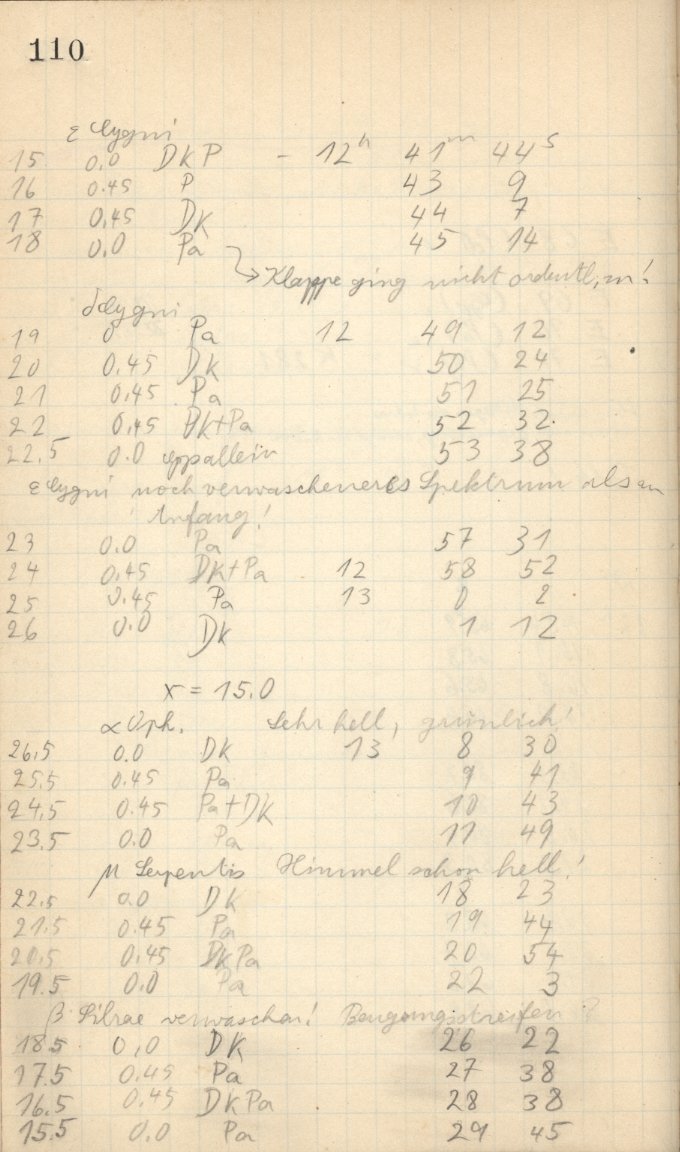 110
ε Cygni
15 0.0 DKP - 12h 41m 44s
16 0.45 P 43 9
17 0.45 DK 44 7
18 0.0 Pa 45 14
Klappe ging nicht ordentl, m!
δ Cygni
19 0 Pa 12 49 12
20 0.45 DK 50 24
21 0.45 Pa 51 25
22 0.45 DK+Pa 52 32
22.5 0.0 allein 53 38
ε Cygni noch verwascheneres Spektrum als am
Anfang!
23 0.0 Pa 57 31
24 0.45 DK+Pa 12 58 52
25 0.45 Pa 13 0 2
26 0.0 DK 1 12
x = 15.0
α Oph. Sehr hell, grünlich!
26.5 0.0 DK 13 8 30
25.5 0.45 Pa 9 41
24.5 0.45 Pa+DK 10 43
23.5 0.0 Pa 11 49
μ Serpentis Himmel schon hell!
22.5 0.0 DK 18 23
21.5 0.45 Pa 19 44
20.5 0.45 DKPa 20 54
19.5 0.0 Pa 22 3
β Librae verwaschen! Beugungsstreifen?
18.5 0,0 DK 26 22
17.5 0.45 Pa 27 38
16.5 0.45 DKPa 28 38
15.5 0.0 Pa 29 45